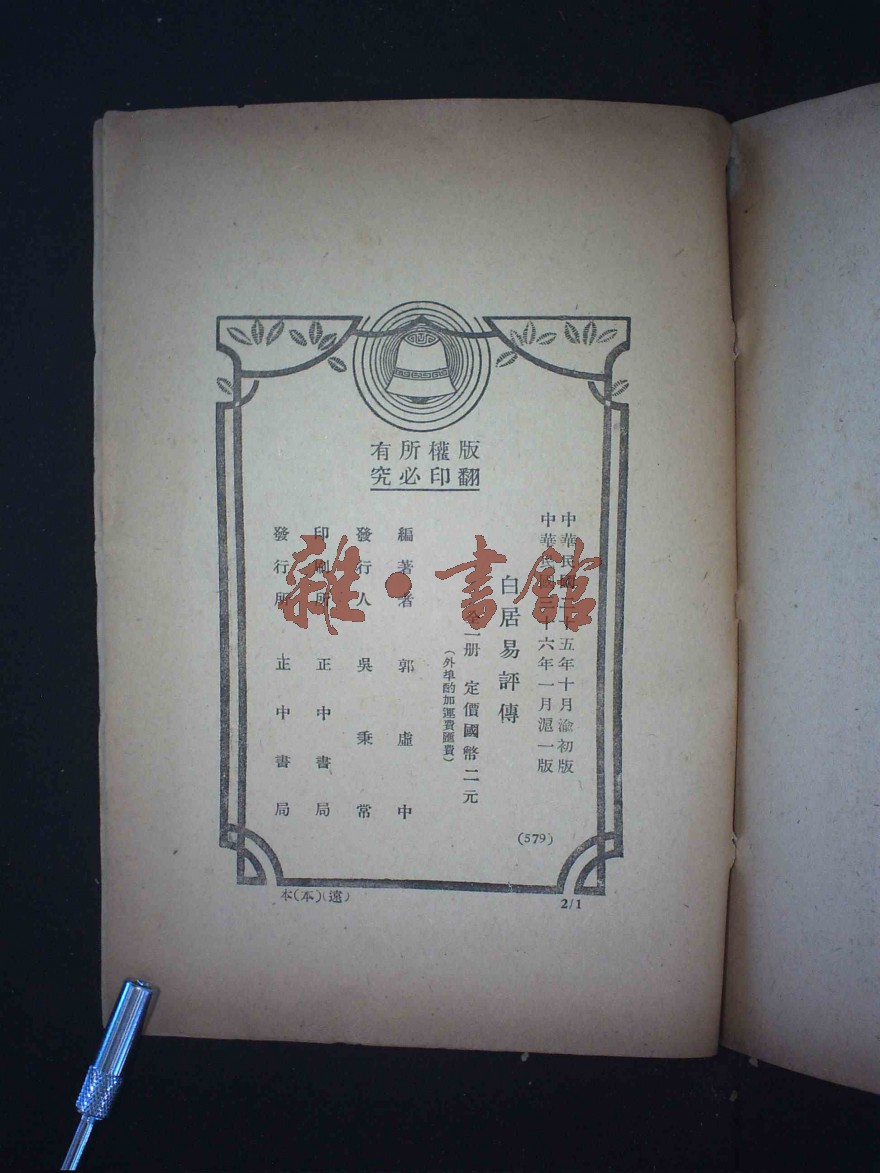 版權所有
翻印必究
中華民國三十五年十月渝初版
中華民國三十六年一月滬一版
白居易評傳
全一册 定價國幣二元
（外埠酌加運費匯費）
編著者 郭虛中
發行人 吳秉常
印刷所 正中書局
發行所 正中書局
(579)
本(本)(遠)
2/1
雜·書館